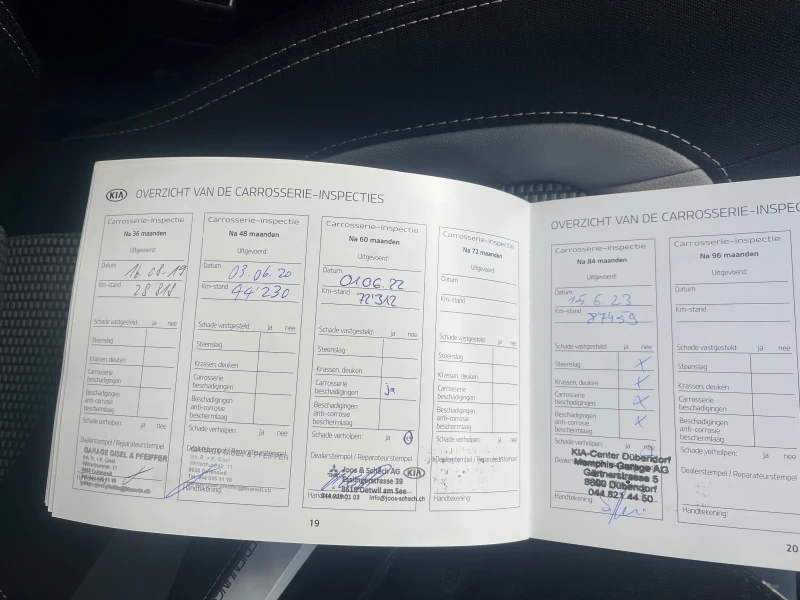 KIA OVERZICHT VAN DE CARROSSERIE-INSPECTIES
Carrosserie-inspectie
Na 36 maanden
Uitgevoerd:
Datum 16.08.19
Km-stand 28 818
Schade vastgesteld: ja nee
Steenslag
Krassen, deuken
Carrosserie
beschadigingen
Beschadigingen
anti-corrosie
beschermlaag
Schade verholpen: ja nee
Dealerstempel / Reparateurstempel
GARAGE GISEL & PFEIFFER
Handtekening:
Carrosserie-inspectie
Na 48 maanden
Uitgevoerd:
Datum 03.06.20
Km-stand 44'230
Schade vastgesteld: ja nee
Steenslag
Krassen, deuken
Carrosserie
beschadigingen
Beschadigingen
anti-corrosie
beschermlaag
Schade verholpen: ja nee
Dealerstempel / Reparateurstempel
GARAGE GISEL & PFEIFFER
Handtekening:
Carrosserie-inspectie
Na 60 maanden
Uitgevoerd:
Datum 01.06.22
Km-stand 72'312
Schade vastgesteld: ja nee
Steenslag
Krassen, deuken
Carrosserie
beschadigingen ja
Beschadigingen
anti-corrosie
beschermlaag
Schade verholpen: ja nee
Dealerstempel / Reparateurstempel
Joos & Schach AG KIA
Esslingerstrasse 39
8618 Oetwil am See
044 929 01 03 info@joos-schach.ch
Carrosserie-inspectie
Na 72 maanden
Uitgevoerd:
Datum
Km-stand
Schade vastgesteld: ja nee
Steenslag
Krassen, deuken
Carrosserie
beschadigingen
Beschadigingen
anti-corrosie
beschermlaag
Schade verholpen: ja nee
Dealerstempel / Reparateurstempel
Handtekening:
19
OVERZICHT VAN DE CARROSSERIE-INSPEC
Carrosserie-inspectie
Na 84 maanden
Uitgevoerd:
Datum 15.6.23
Km-stand 87459
Schade vastgesteld: ja nee
Steenslag X
Krassen, deuken X
Carrosserie
beschadigingen X
Beschadigingen
anti-corrosie
beschermlaag X
Schade verholpen: ja
KIA-Center Dübendorf
Memphis-Garage AG
Gärtnerstrasse 5
8600 Dübendorf
044 821 44 50
Handtekening:
Carrosserie-inspectie
Na 96 maanden
Uitgevoerd:
Datum
Km-stand
Schade vastgesteld: ja nee
Steenslag
Krassen, deuken
Carrosserie
beschadigingen
Beschadigingen
anti-corrosie
beschermlaag
Schade verholpen: ja nee
Dealerstempel / Reparateurstempel
Handtekening:
20